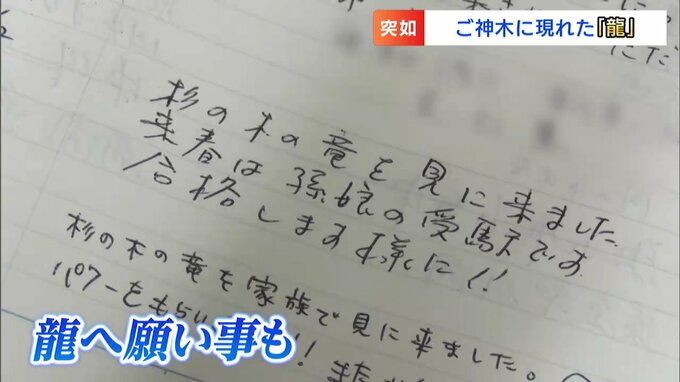 突如
ご神木に現れた「龍」
杉の木の竜を見に来ました
来春は孫娘の受験です
合格します様に!!
杉の木の竜を家族で見に来ました。
パワーをもらい
龍へ願い事も